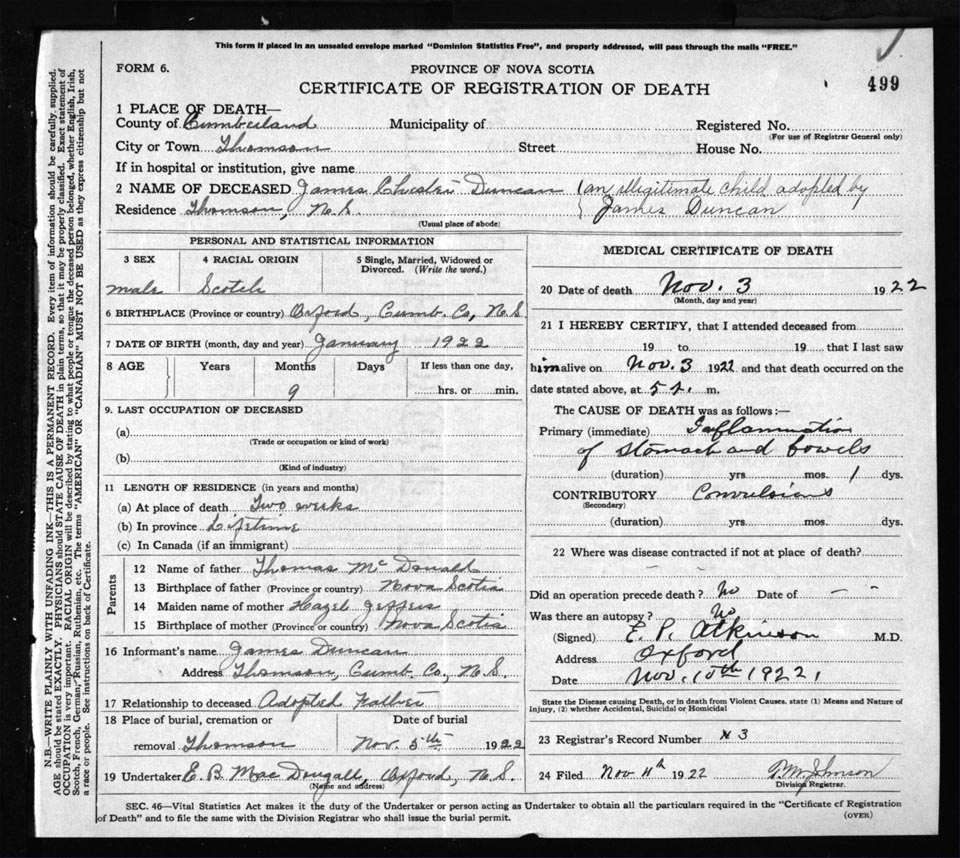 This form if placed in an unsealed envelope marked "Dominion Statistics Free", and properly addressed, will pass through the mails "FREE."
FORM 6.
PROVINCE OF NOVA SCOTIA
CERTIFICATE OF REGISTRATION OF DEATH
499
1 PLACE OF DEATH—
County of Cumberland Municipality of Registered No.
(For use of Registrar General only)
City or Town Thomson Street House No.
If in hospital or institution, give name
2 NAME OF DECEASED James Chester Duncan (an illegitimate child adopted by
Residence Thomson, N.S. James Duncan
(Usual place of abode)
PERSONAL AND STATISTICAL INFORMATION
3 SEX 4 RACIAL ORIGIN 5 Single, Married, Widowed or Divorced. (Write the word.)
male Scotch
6 BIRTHPLACE (Province or country) Oxford, Cumb. Co, N.S.
7 DATE OF BIRTH (month, day and year) January 1922
8 AGE Years Months Days If less than one day,
9 hrs. or min.
9. LAST OCCUPATION OF DECEASED
(a)
(Trade or occupation or kind of work)
(b)
(Kind of industry)
11 LENGTH OF RESIDENCE (in years and months)
(a) At place of death Two weeks
(b) In province Lifetime
(c) In Canada (if an immigrant)
Parents
12 Name of father Thomas McDonald
13 Birthplace of father (Province or country) Nova Scotia
14 Maiden name of mother Hazel Jeffers
15 Birthplace of mother (Province or country) Nova Scotia
16 Informant's name James Duncan
Address Thomson, Cumb. Co, N.S.
17 Relationship to deceased Adopted Father
18 Place of burial, cremation or Date of burial
removal Thomson Nov. 5th 1922
19 Undertaker E. B. MacDougall, Oxford, N.S.
(Name and address)
MEDICAL CERTIFICATE OF DEATH
20 Date of death Nov. 3 1922
(Month, day and year)
21 I HEREBY CERTIFY, that I attended deceased from
19 to 19 that I last saw
him alive on Nov. 3 1922 and that death occurred on the
date stated above, at 5 m.
The CAUSE OF DEATH was as follows:—
Primary (immediate) Inflammation
of stomach and bowels
(duration) yrs. mos. 1 dys.
CONTRIBUTORY Convulsions
(Secondary)
(duration) yrs. mos. dys.
22 Where was disease contracted if not at place of death?
Did an operation precede death? No Date of — —
Was there an autopsy? No
(Signed) E. P. Atkinson M.D.
Address Oxford
Date Nov. 10th 1922
State the Disease causing Death, or in death from Violent Causes, state (1) Means and Nature of
Injury, (2) whether Accidental, Suicidal or Homicidal
23 Registrar's Record Number 3
24 Filed Nov 11th 1922 Johnson
Division Registrar.
SEC. 46—Vital Statistics Act makes it the duty of the Undertaker or person acting as Undertaker to obtain all the particulars required in the "Certificate of Registration
of Death" and to file the same with the Division Registrar who shall issue the burial permit.
(OVER)
N.B.—WRITE PLAINLY WITH UNFADING INK—THIS IS A PERMANENT RECORD. Every item of information should be carefully supplied.
AGE should be stated EXACTLY. PHYSICIANS should STATE CAUSE OF DEATH in plain terms, so that it may be properly classified. Exact statement of
OCCUPATION is very important. RACIAL ORIGIN will be described by stating to what people or tongue the deceased person belonged, whether English, Irish,
Scotch, French, German, Russian, Ruthenian, etc. The terms "AMERICAN" or "CANADIAN" MUST NOT BE USED as they express citizenship but not
a race or people. See instructions on back of Certificate.